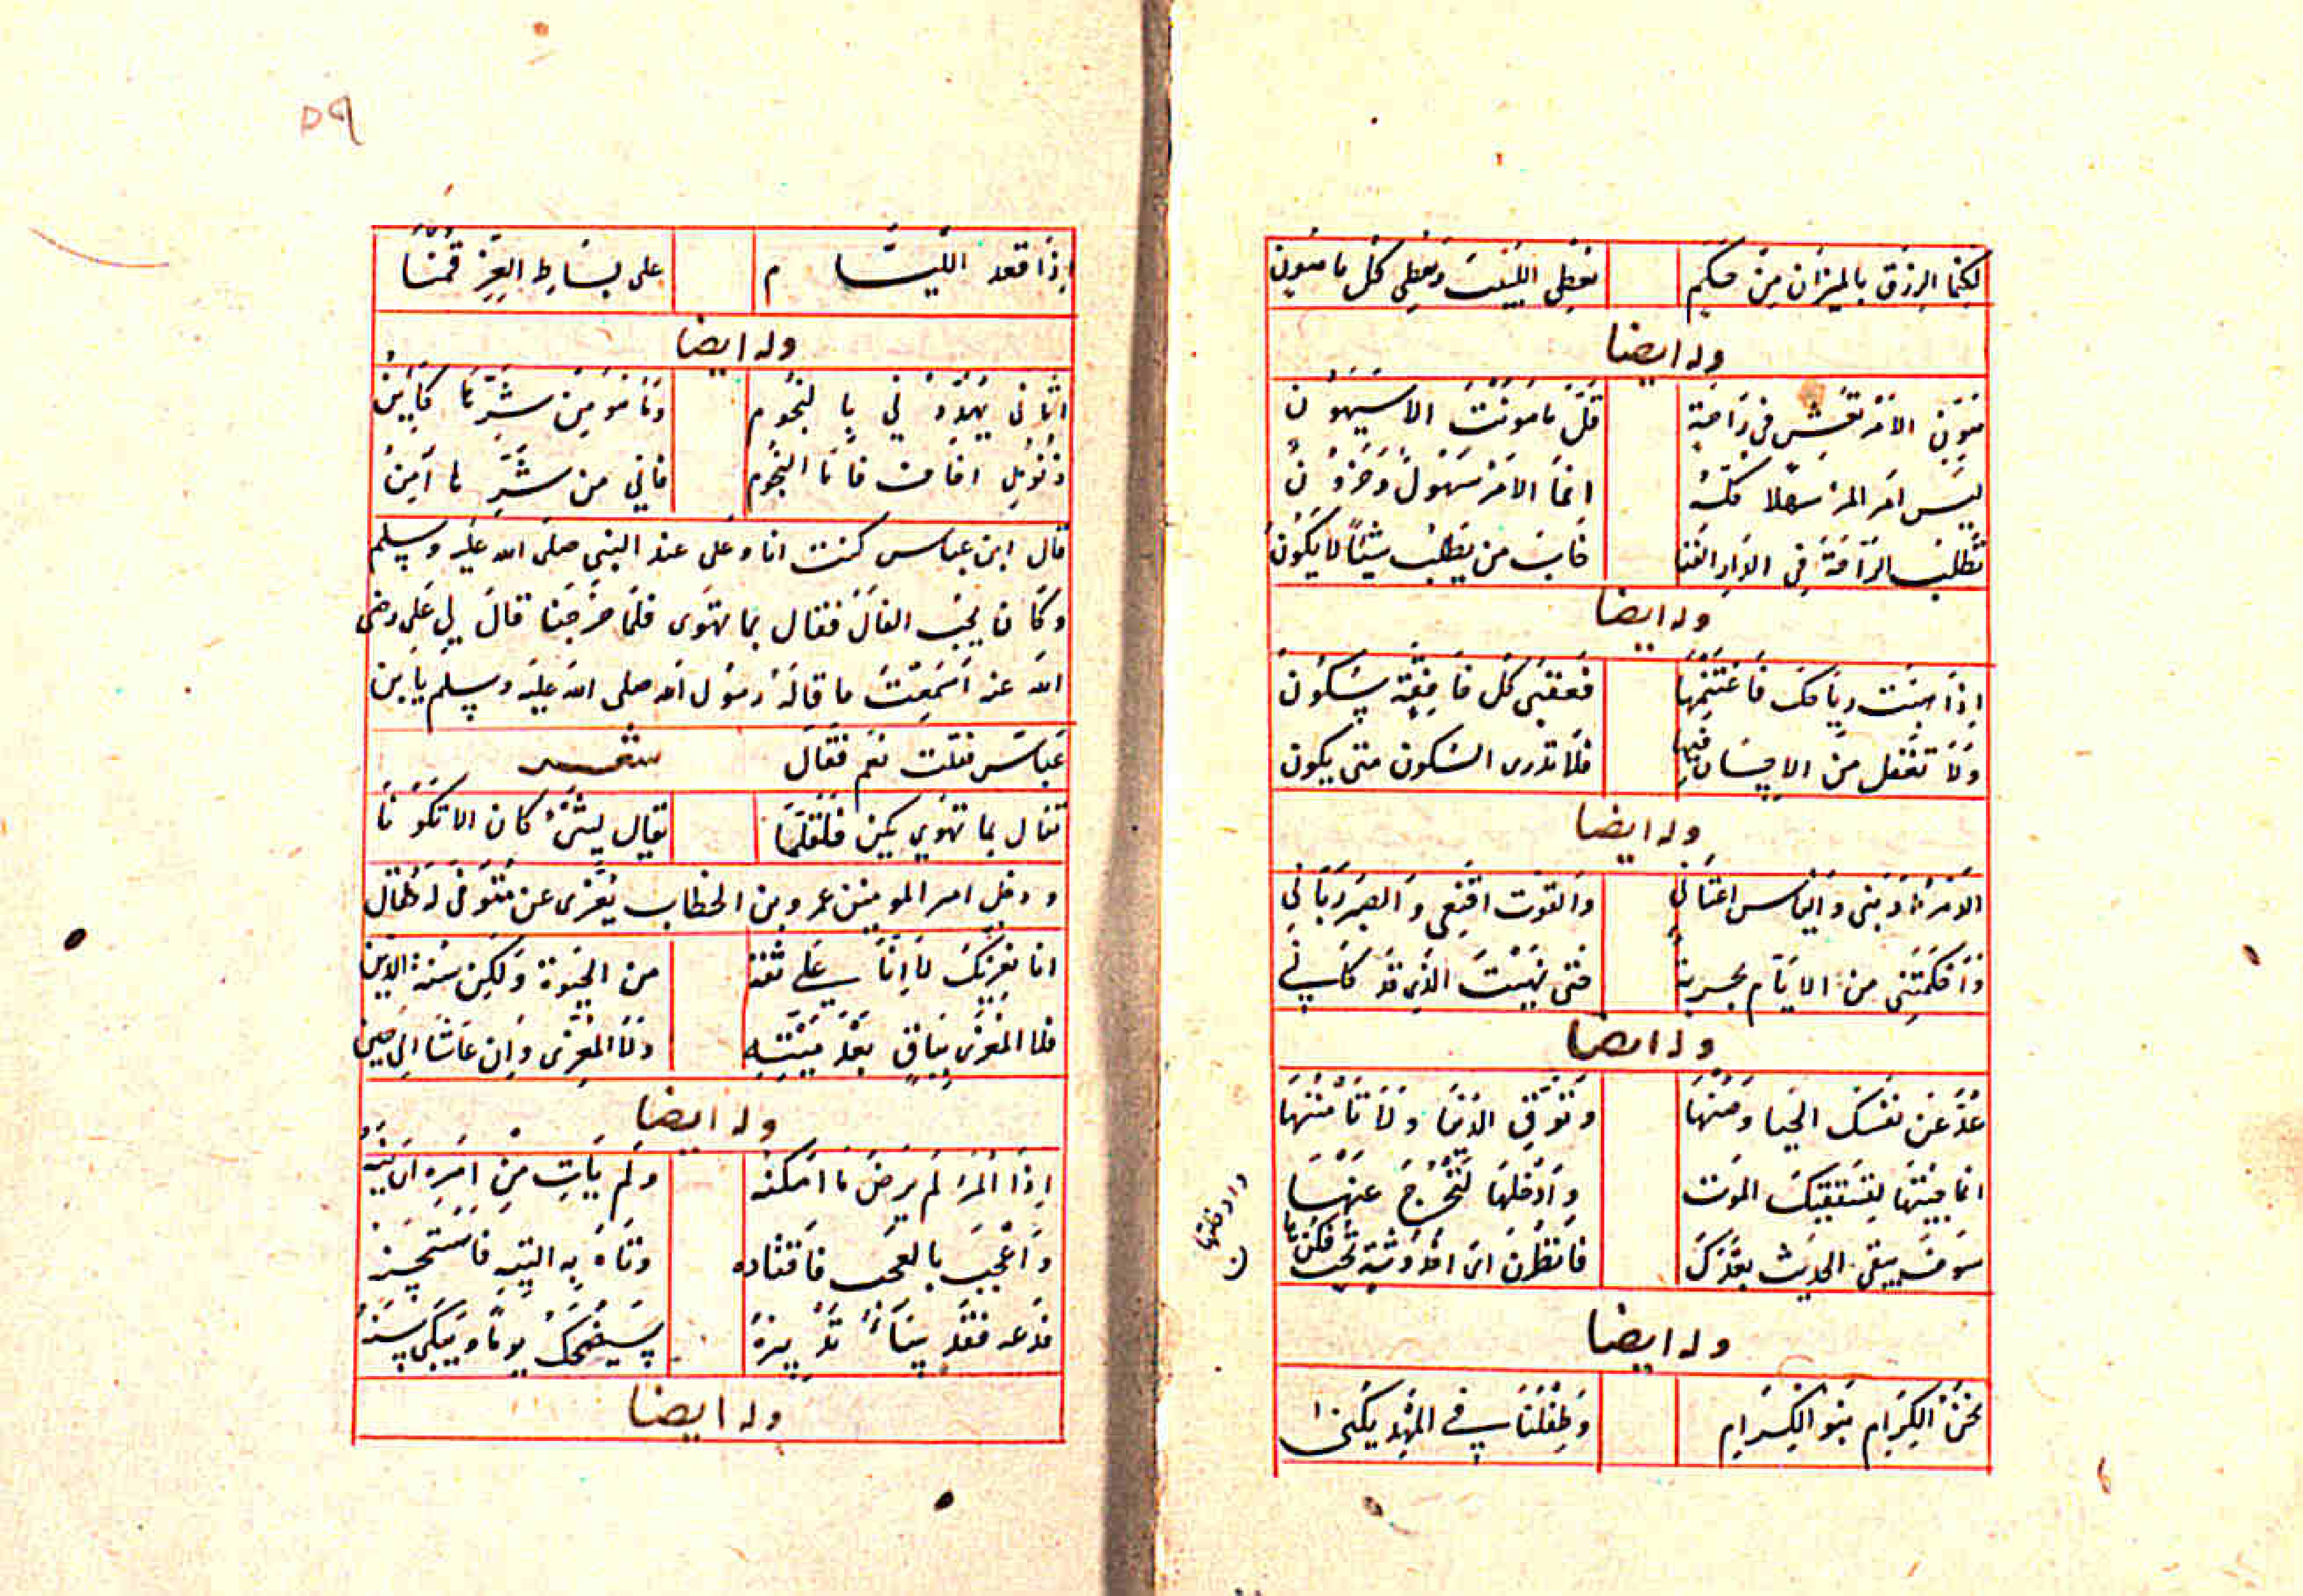 لكنما الرزق بالميزان من حكم يعطي اللبيب ويعطي كل مافون
وله ايضا
هون الامر تعش في راحة قل ما هونت الا سيهون
ليس امر المرء سهلا كله انما الامر سهول وحزون
تطلب الراحة في الدار الفنا خاب من يطلب شيئا لا يكون
وله ايضا
اذا هبت رياحك فاغتنمها فعقبى كل خافقة سكون
ولا تغفل عن الاحسان فيها فلا تدرى السكون متى يكون
وله ايضا
الدهر ادبنى والياس اغناني والقوت اقنعني والصبر رباني
واحكمتني من الايام تجربة حتى نهيت الذى قد كان ينهاني
وله ايضا
عد عن نفسك الحيا وصنها وتوق الدنيا ولا تأمننها
انما جئتها لتستقبل الموت وادخلتها لتخرج عنها
سوف يبقى الحديث بعدك فانظرن اى احدوثة تحب فكنها
وادخلتها ن
وله ايضا
نحن الكرام بنو الكرام وطفلنا في المهد يكنى
٥٩
اذا قعد اللئام على بساط العز قمنا
وله ايضا
اتانى يهددني بالنجوم وما هو من شره كاين
ذنوبي اخاف فاما النجوم فاني من شرها آمن
قال ابن عباس كنت انا وعلى عند النبي صلى الله عليه وسلم
وكان يحب الفال فقال بما تهوى فلما خرجنا قال لي على رضى
الله عنه اسمعت ما قاله رسول الله صلى الله عليه وسلم يا بن
عباس فقلت نعم فقال شعر
تفال بما تهوى يكن فلقلما يقال لشئ كان الا تكونا
ودخل امير المومنين عمر وبن الخطاب يعزى عن متوفى له فقال
انا نعزيك لا انا على ثقة من الحيوة ولكن سنة الدين
فلا المعزى بباق بعد ميته ولا المعزى وان عاشا الى حين
وله ايضا
اذا المرء لم يرض ما امكنه ولم يات من امره ازينه
واعجب بالعجب فاقتاده وتاه به التيه فاستحسنه
فدعه فقد ساء تدبيره سيضحك يوما ويبكى سنه
وله ايضا